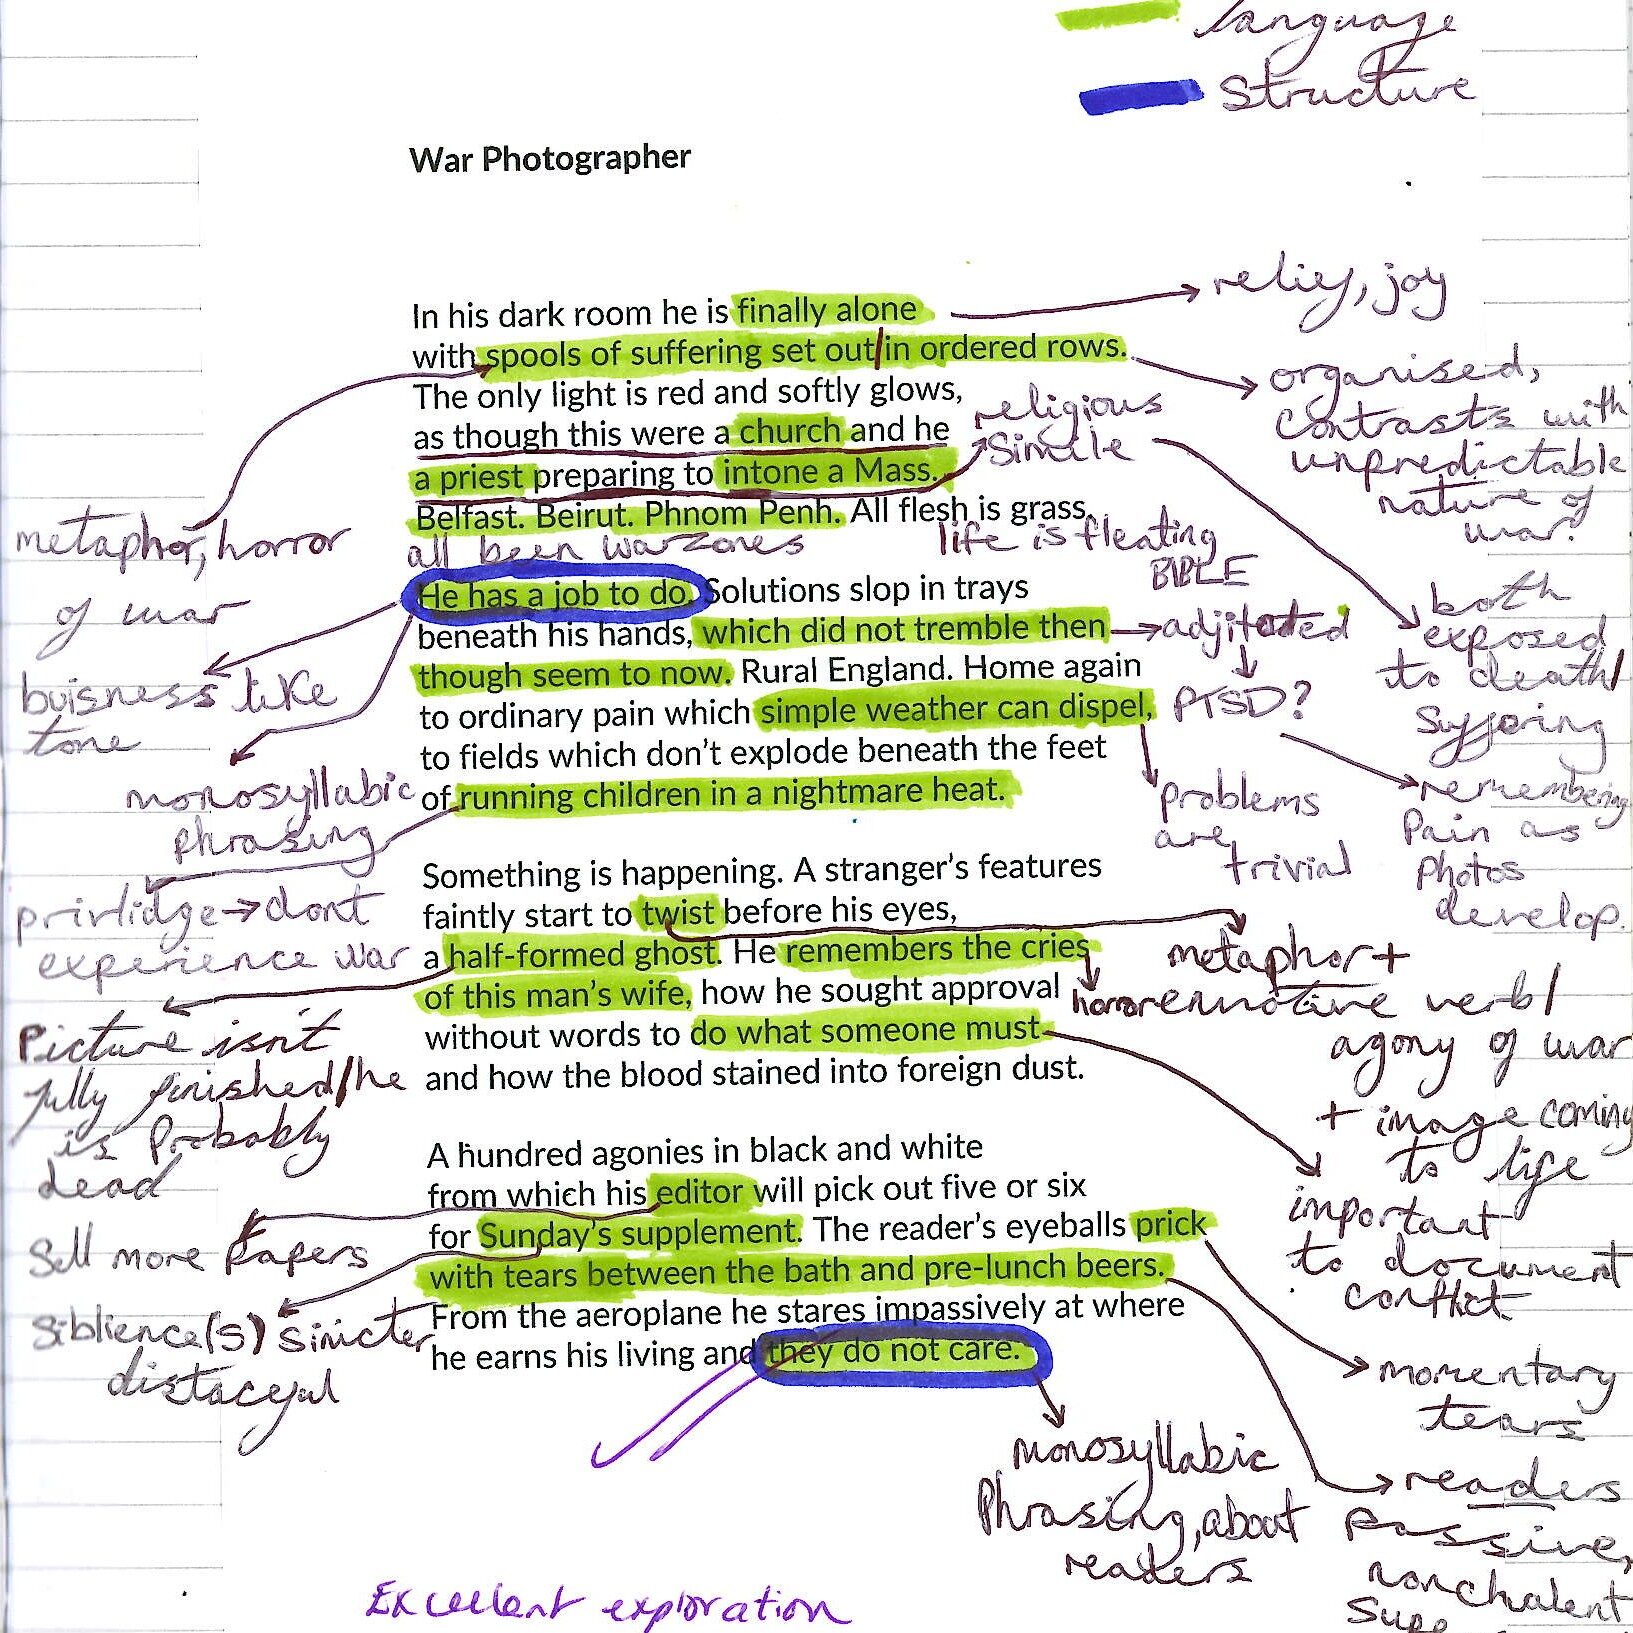 language
Structure
War Photographer
In his dark room he is finally alone
relief, joy
with spools of suffering set out in ordered rows.
organised,
contrasts with
unpredictable
nature of
war?
The only light is red and softly glows,
as though this were a church and he
religious
Simile
a priest preparing to intone a Mass.
Belfast. Beirut. Phnom Penh. All flesh is grass.
all been warzones
life is fleating
BIBLE
metaphor, horror
of war
both
exposed
to death/
suffering
He has a job to do. Solutions slop in trays
beneath his hands, which did not tremble then
adjitated
PTSD?
remembering
Pain as
Photos
develop.
though seem to now. Rural England. Home again
to ordinary pain which simple weather can dispel,
problems
are
trivial
to fields which don't explode beneath the feet
of running children in a nightmare heat.
buisness like
tone
monosyllabic
phrasing
privlidge → dont
experience war
Something is happening. A stranger's features
faintly start to twist before his eyes,
a half-formed ghost. He remembers the cries
of this man's wife, how he sought approval
without words to do what someone must
and how the blood stained into foreign dust.
metaphor +
horror emotive verb/
agony of war
+ image coming
to life
important
to document
conflict
Picture isn't
fully finished/he
is probably
dead
A hundred agonies in black and white
from which his editor will pick out five or six
for Sunday's supplement. The reader's eyeballs prick
with tears between the bath and pre-lunch beers.
From the aeroplane he stares impassively at where
he earns his living and they do not care.
Sell more papers
Siblience(s) sinicter
distaceful
momentary
tears
monosyllabic
Phrasing, about
readers
readers
passive,
nonchalent
Excellent exploration